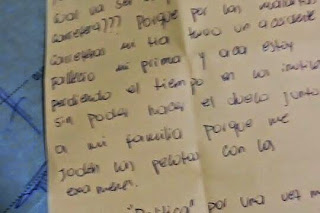 cual va ser
carretera??? Porque por las malditas
carreteras mi tia tuvo un accidente
falleció mi prima y acá estoy
perdiendo el tiempo en un instituto
sin poder hacer el duelo junto
a mi familia porque me
joden las pelotas con los
examenes.
por una vez